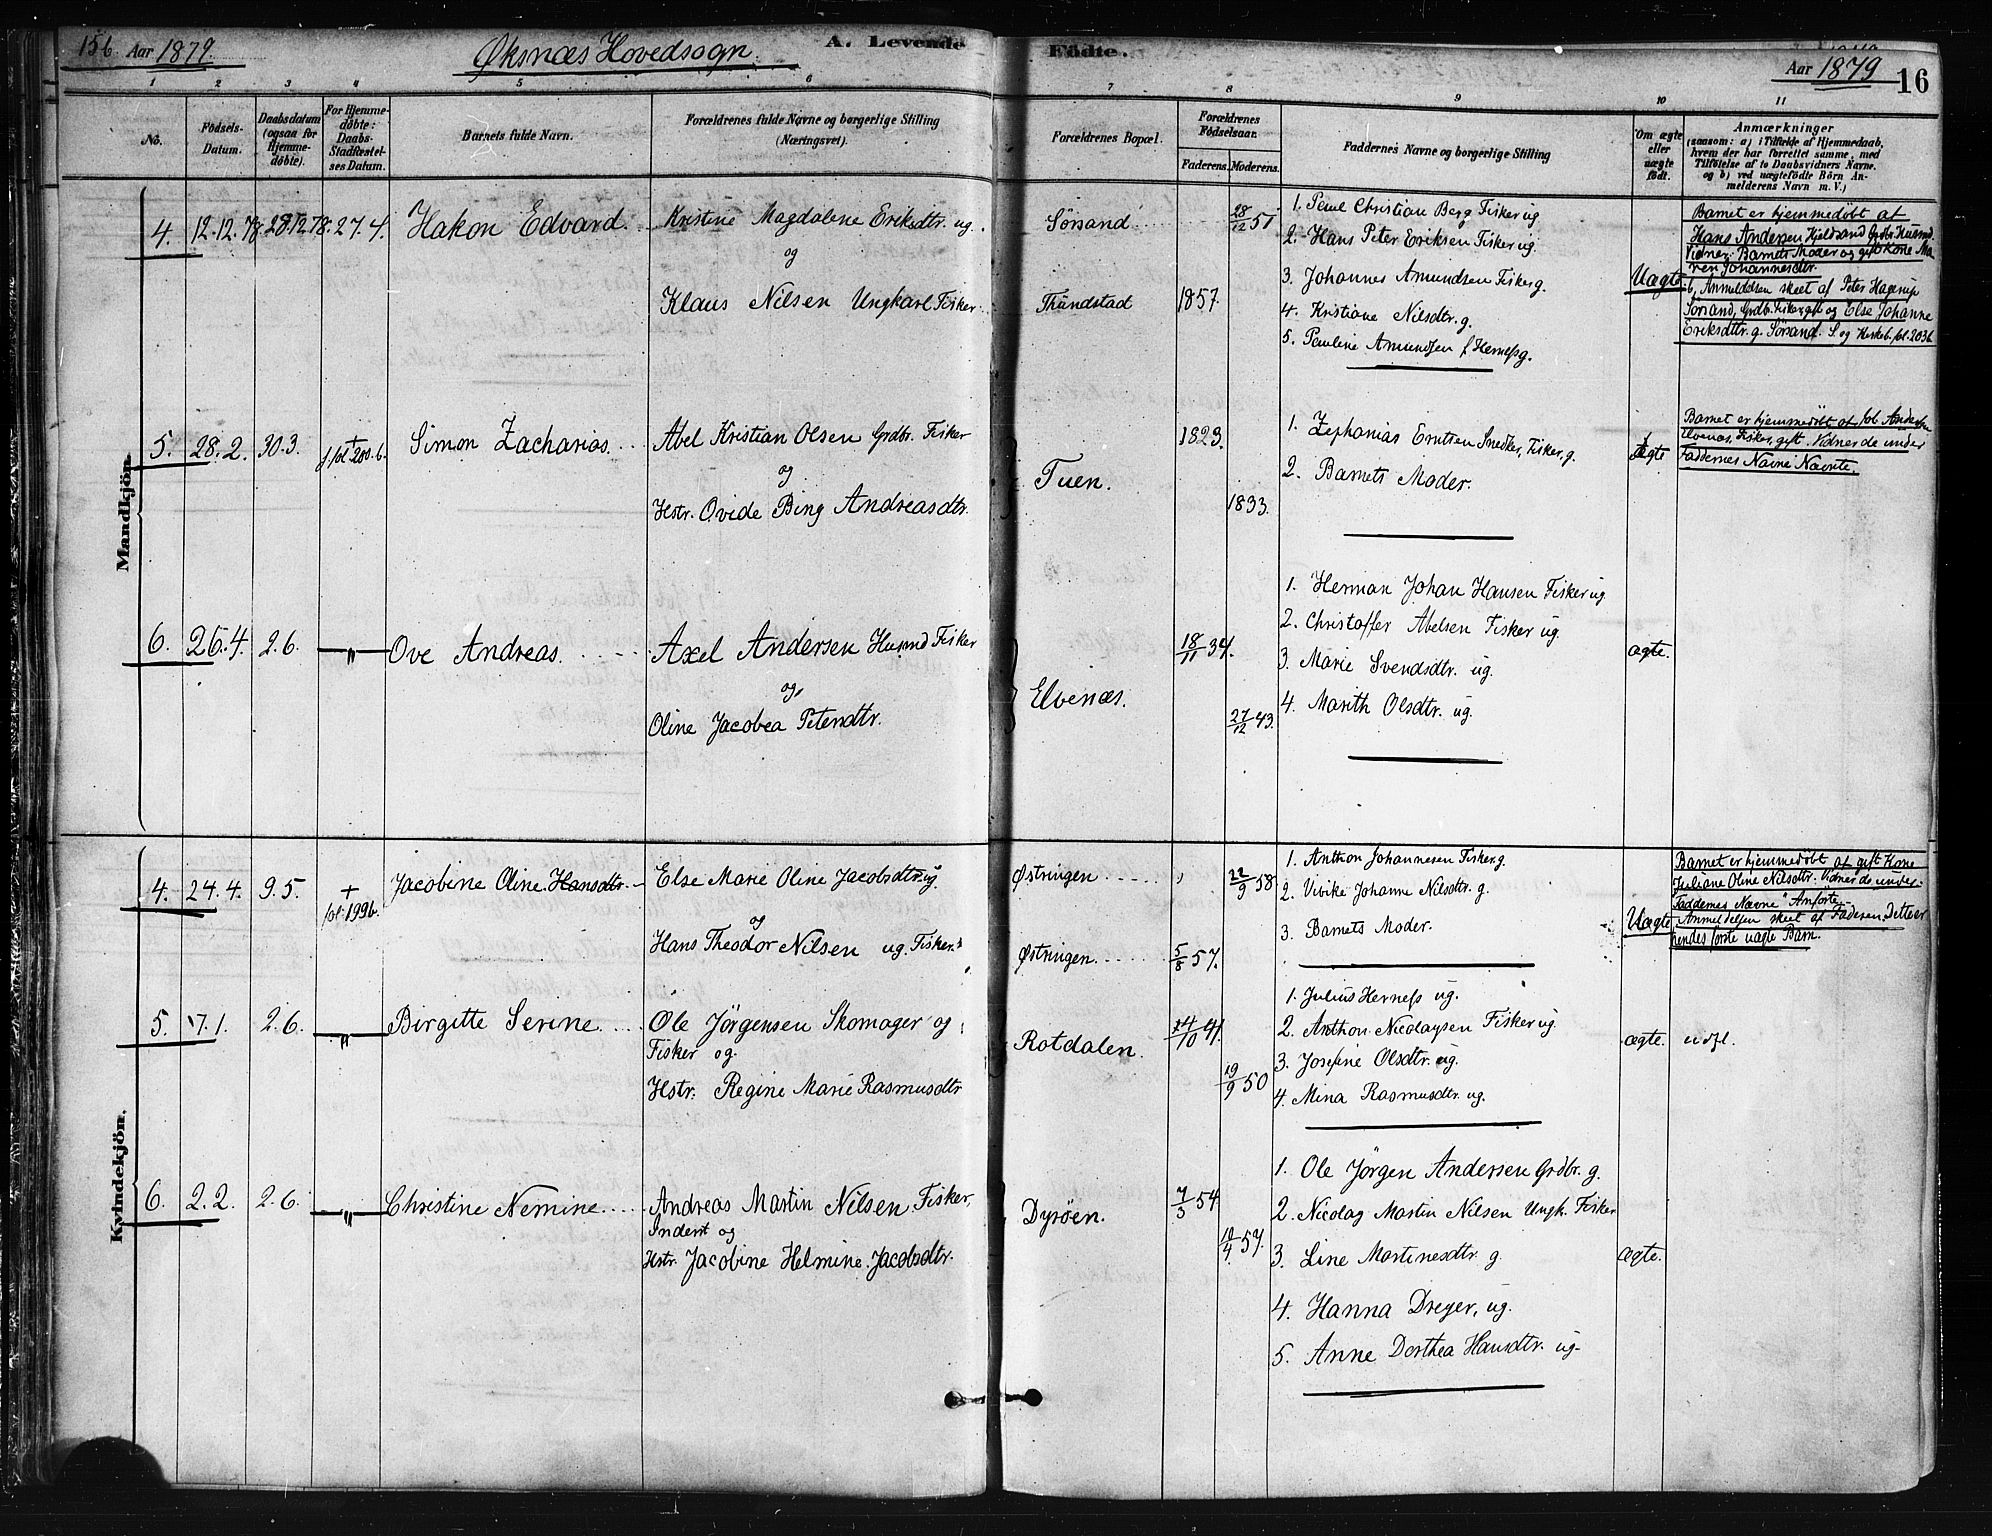 156 Aar 1879. Øksnæs Hovedsogn. A. Levende Födte. Aar 1879 16
1 2 3 4 5 6 7 8 9 10 11
No.
Födsels-
Datum.
Daabsdatum
(ogsaa for
Hjemme-
döbte).
For Hjemme-
döbte:
Daabs-
Stadfæstel-
ses Datum.
Barnets fulde Navn.
Forældrenes fulde Navne og borgerlige Stilling
(Næringsvei).
Forældrenes Bopæl.
Forældrenes
Födselsaar.
Faderens. Moderens.
Faddernes Navne og borgerlige Stilling
Om ægte
eller
uægte
födt.
Anmærkninger
(saasom: a) i Tilfælde af Hjemmedaab,
hvem der har forrettet samme, med
Tilföielse af to Daabsvidners Navne.
og b) ved uægtefödte Börn An-
melderens Navn m. V.)
Mandkjön.
4. 12.12.78. 28.12.78. 27.4. Hakon Edvard.
Kristine Magdalene Eriksdtr. ug.
og
Klaus Nilsen Ungkarl Fisker.
Sørsand
28/12 51
1857.
1. Paul Christian Berg Fisker ug
2. Hans Peter Eriksen Fisker ug.
3. Johannes Amundsen Fisker g.
4. Kristiane Nilsdtr. g.
5. Pauline Amundsen f. Herness g.
Uægte
Barnet er hjemmedøbt af
Hans Andersen Kjeldsand Grdbr. Husmd.
Vidner: Barnets Moder og gift Kone Ma-
ren Johannesdtr.
b, Anmeldelsen skeet af Peter Hagerup
Sørsand, Grdbr. Fisker gift og Else Johanne
Eriksdtr. g. Sørsand.
5. 28.2. 30.3. + Simon Zacharias.
Abel Kristian Olsen Grdbr. Fisker
og
Hstr. Ovide Bing Andreasdtr.
Tuen.
1823.
1833.
1. Zephanias Erntsen Snedker, Fisker, g.
2. Barnets Moder.
Ægte
Barnet er hjemmedøbt af
Elvenæs, Fisker, gift. Vidner de under
Faddernes Navne Nævnte.
6. 26.4. 2.6. — " — Ove Andreas.
Axel Andersen Husmd Fisker
og
Oline Jacobea Petersdtr.
Elvenæs.
18/11 34.
27/12 43.
1. Herman Johan Hansen Fisker ug
2. Christoffer Abelsen Fisker ug.
3. Marie Svendsdtr. ug.
4. Marith Olsdtr. ug.
ægte.
Kvindekjön.
4. 24.4. 9.5. + fol. 199b. Jacobine Oline Hansdtr.
Else Marie Oline Jacobsdtr. ug.
og
Hans Theodor Nilsen ug. Fisker.
Østringen
Østringen
22/9 58
5/8 57.
1. Anthon Johannesen Fisker g.
2. Vibike Johanne Nilsdtr. g.
3. Barnets Moder.
Uægte
Barnet er hjemmedøbt af gift Kone
Juliane Oline Nilsdtr. Vidner de under
Faddernes Navne Anførte.
Anmeldelsen skeet af Faderen. Dette er
hendes første uægte Barn.
5. 17.1. 2.6. — " — Birgitte Serine
Ole Jörgensen Skomager og
Fisker og
Hstr. Regine Marie Rasmusdtr
Rotdalen.
14/10 41.
19/9 50
1. Julius Herness ug.
2. Anthon Nicolaysen Fisker ug.
3. Josefine Olsdtr. ug.
4. Mina Rasmusdtr. ug.
ægte.
6. 2.2. 2.6. — " — Christine Nemine
Andreas Martin Nilsen Fisker,
Inderst og
Hstr. Jacobine Helmine Jacobsdtr.
Dyrøen.
7/3 54
10/4 57.
1. Ole Jörgen Andersen Grdbr. g.
2. Nicolag Martin Nilsen Ungk. Fisker
3. Line Martinesdtr. g.
4. Hanna Dreyer, ug.
5. Anne Dorthea Hansdtr. ug.
ægte.